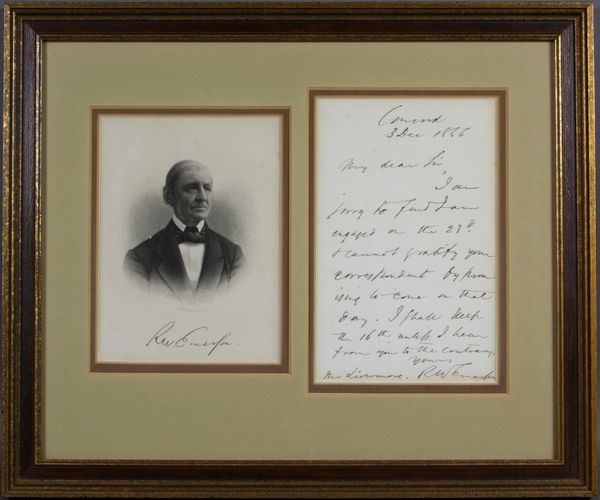 R. W. Emerson.
Concord
3 Dec 1866
My dear Sir,
I am
sorry to find I am
engaged on the 23d.
& cannot gratify your
correspondent by prom
ising to come on that
day. I shall keep
the 16th, unless I hear
from you to the contrary.
Yours
Mr Livermore. R. W. Emerson